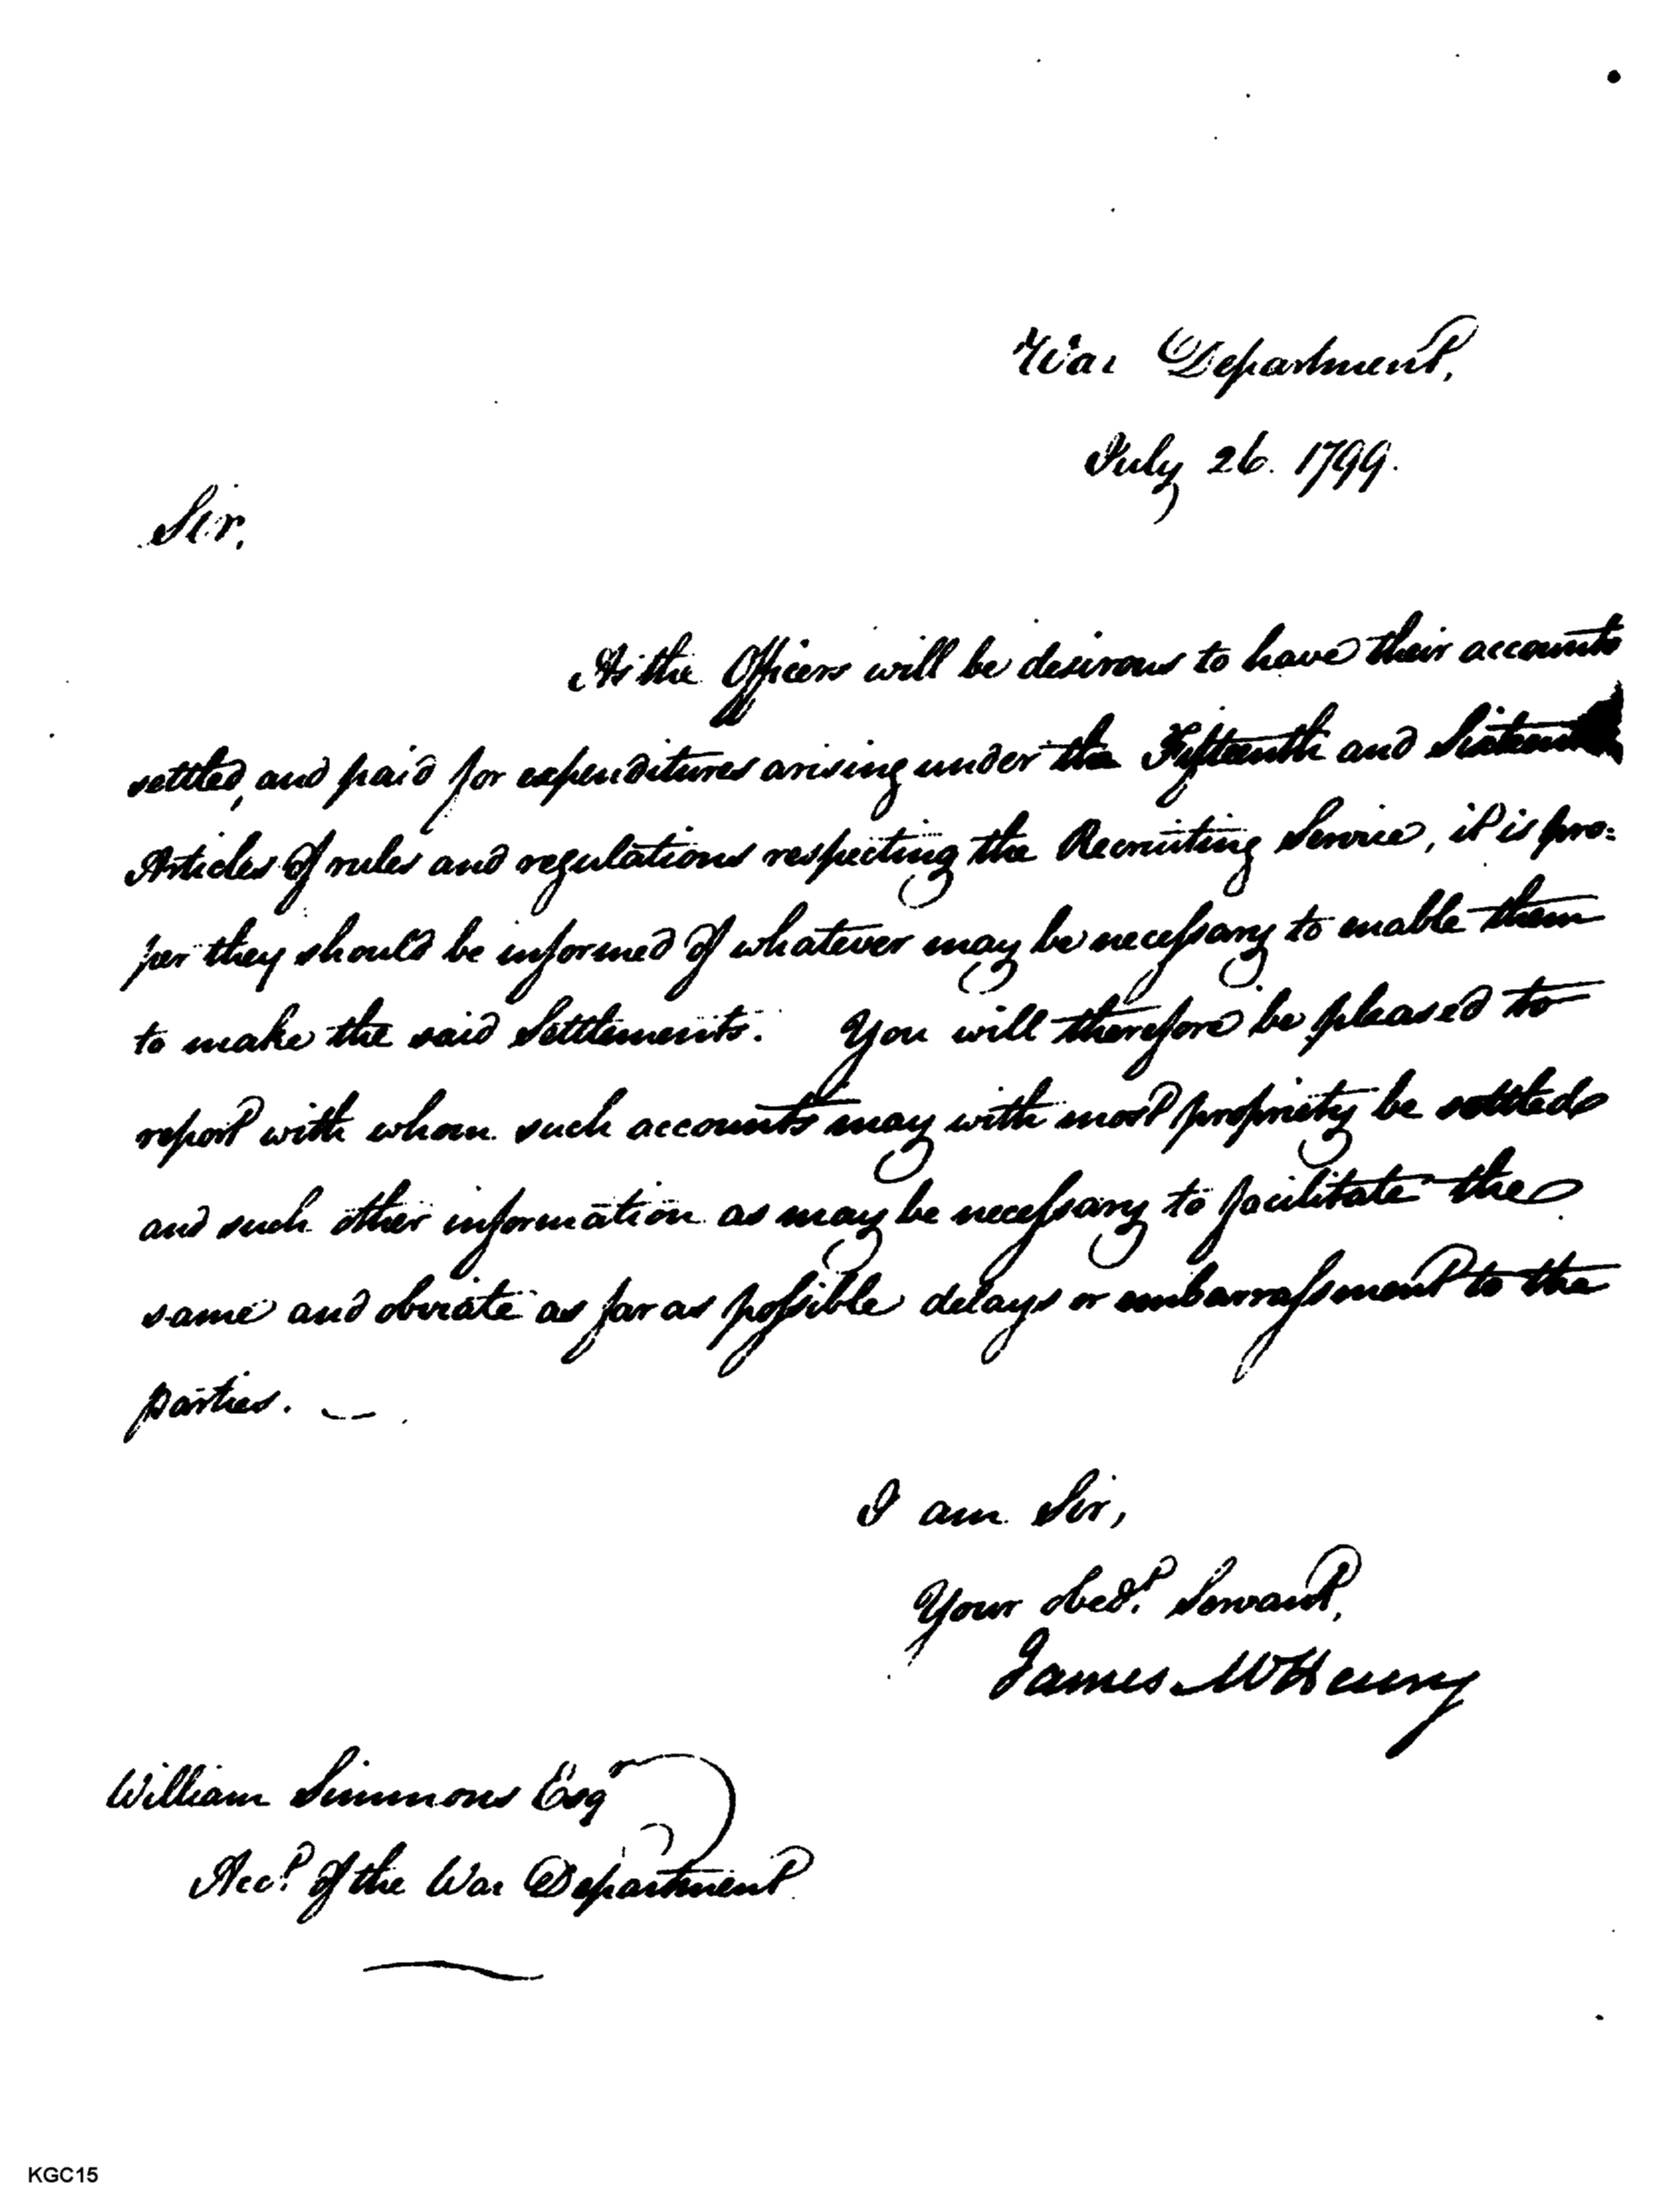 War Department,
July 26. 1799.
Sir,
As the Officers will be desirous to have their accounts
settled, and paid for expenditures arising under the Fifteenth and Sixteenth
Articles of rules and regulations respecting the Recruiting Service, it is pro=
per they should be informed of whatever may be necessary to enable them
to make the said Settlements. You will therefore be pleased to
report with whom such accounts may with most propriety be settled
and such other information as may be necessary to facilitate the
same and obviate as far as possible delays or embarrassment to the
parties. —
I am Sir,
Your obed.t Servant,
James McHenry
William Simmons Esqr
Acc.t of the War Department
KGC15